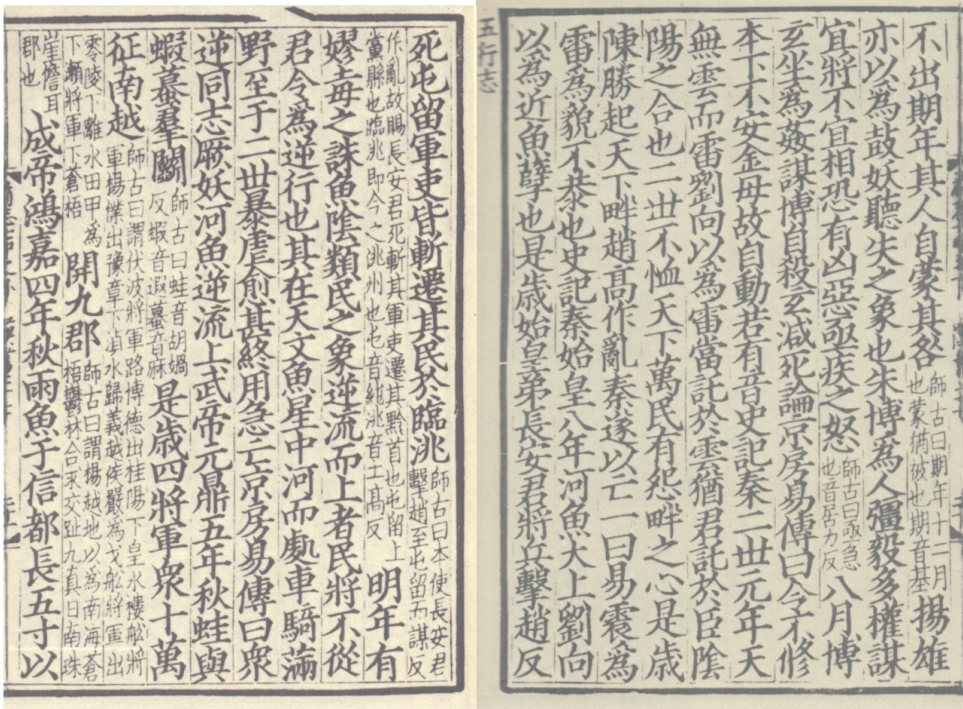 不出期年其人自蒙其咎師古曰期年十二月也蒙猶被也期音基揚雄
亦以為鼓妖聽失之象也朱博為人彊毅多權謀
宜將不宜相恐有凶惡亟疾之怒師古曰亟急也音居力反八月博
玄坐為姦謀博自殺玄減死論京房易傳曰今不修
本下不安金毋故自動若有音史記秦二世元年天
無雲而雷劉向以為雷當託於雲猶君託於臣陰
陽之合也二世不恤天下萬民有怨畔之心是歲
陳勝起天下畔趙高作亂秦遂以亡一曰易震為
雷為貌不恭也史記秦始皇八年河魚大上劉向
以為近魚孽也是歲始皇弟長安君將兵擊趙反
五行志
死屯留軍吏皆斬遷其民於臨洮師古曰本使長安君擊趙至屯留而謀反
作亂故賜長安君死斬其軍吏遷其黔首也屯留上黨縣也臨洮即今之洮州也屯音純洮音土高反明年有
嫪毐之誅魚陰類民之象逆流而上者民將不從
君令為逆行也其在天文魚星中河而處車騎滿
野至于二世暴虐愈甚終用急亡京房易傳曰眾
逆同志厥妖河魚逆流上武帝元鼎五年秋蛙與
蝦蟇羣鬭師古曰蛙音胡媧反蝦音遐蟇音麻是歲四將軍眾十萬
征南越師古曰謂伏波將軍路博德出桂陽下皇水樓船將軍楊僕出豫章下湞水歸義越侯嚴為戈船將軍出
零陵下離水田甲為下瀨將軍下蒼梧開九郡師古曰謂揚越地以為南海蒼梧鬱林合浦交趾九真日南珠
崖儋耳郡也成帝鴻嘉四年秋雨魚于信都長五寸以